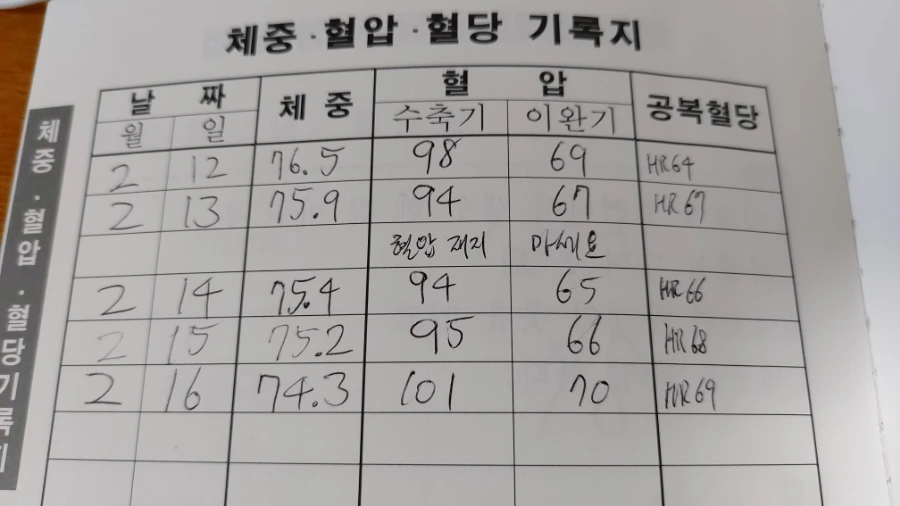 체중·혈압·혈당 기록지
날 짜 체 중 혈 압 공복혈당
월 일 수축기 이완기
2 12 76.5 98 69 HR64
2 13 75.9 94 67 HR67
혈압 재지 마세요
2 14 75.4 94 65 HR66
2 15 75.2 95 66 HR68
2 16 74.3 101 70 HR69
체중·혈압·혈당기록지